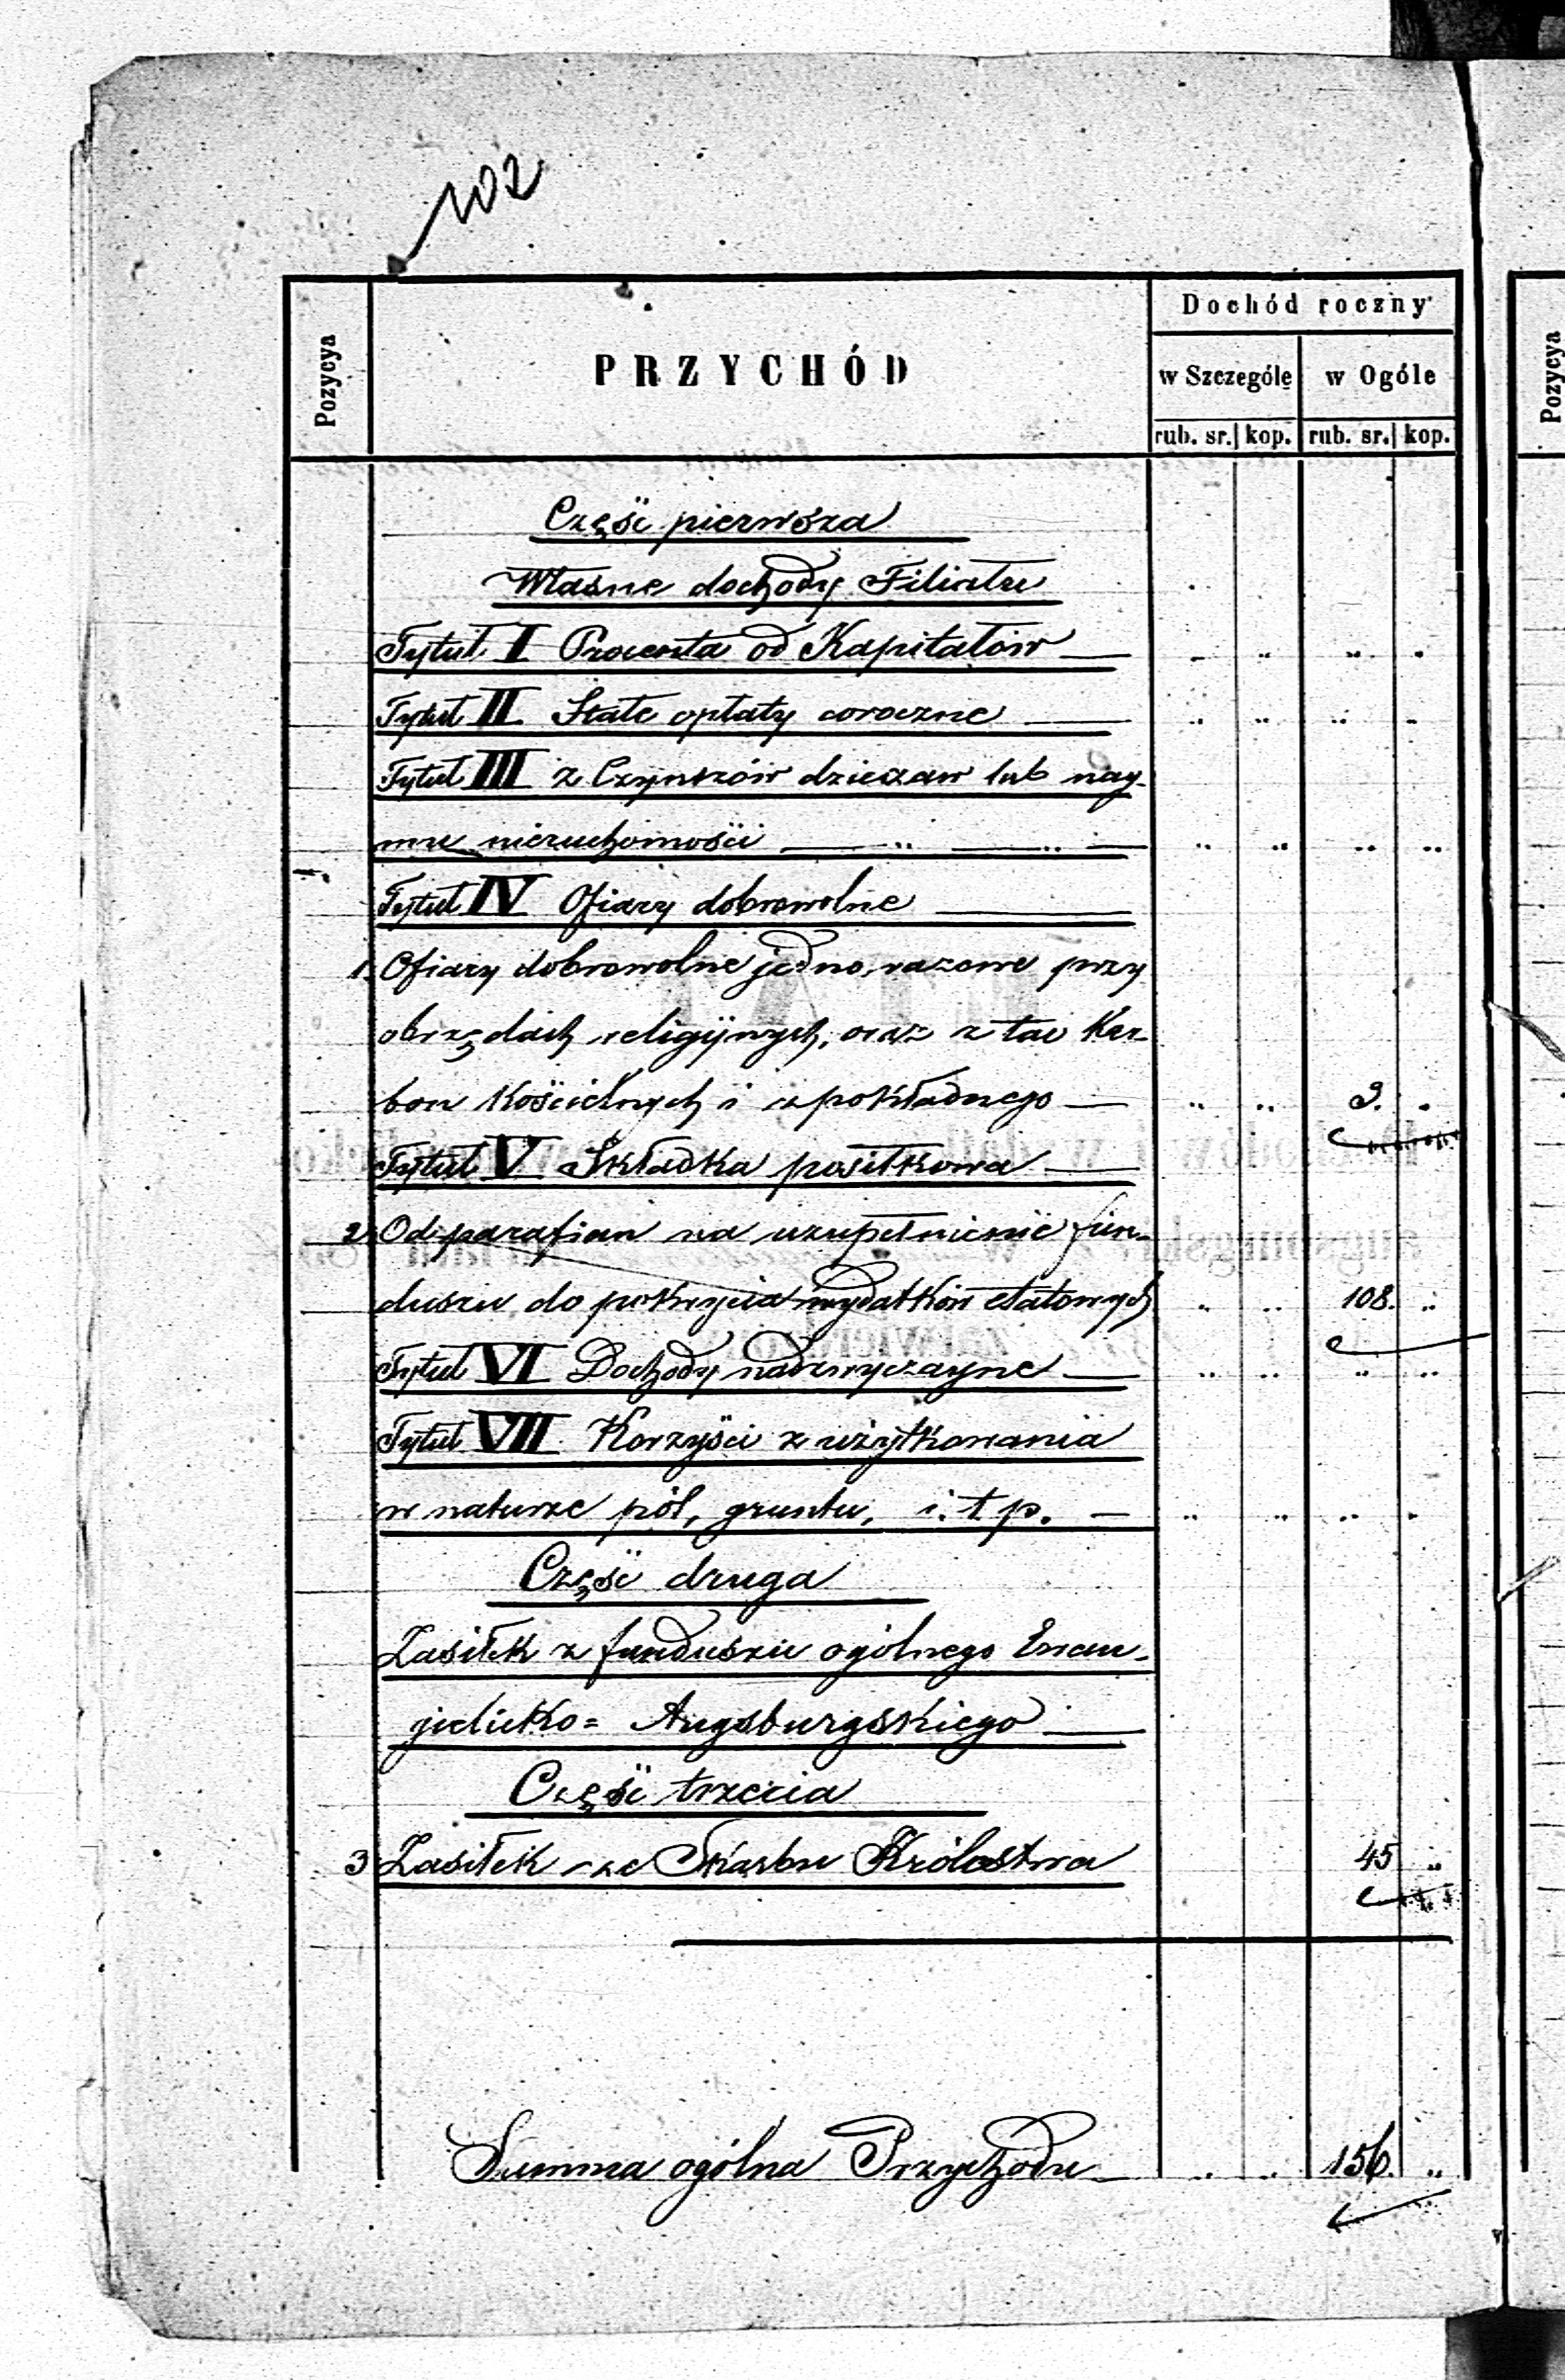 102
Pozycya
PRZYCHÓD
Dochód roczny
w Szczególe
w Ogóle
rub. sr. kop. rub. sr. kop.
Pozycya
Część pierwsza
Własne dochody Filiału
Tytuł I Procenta od Kapitałów — „ „ „ „
Tytuł II Stałe opłaty coroczne — „ „ „ „
Tytuł III z Czynszów dzierzaw lub nay-
mu nieruchomości — „ — „ — „ „ „ „
Tytuł IV Ofiary dobrowolne —
1. Ofiary dobrowolne jedno,razowe przy
obrzędach religijnych, oraz z tac Kar-
bon Kościelnych i z pokładnego — „ „ 3. „
Tytuł V Składka posiłkowa —
2. Od parafian na uzupełnienie fun-
duszu do pokrycia wydatków etatowych „ „ 108. „
Tytuł VI Dochody nadzwyczayne — „ „ „ „
Tytuł VII Korzyści z użytkowania
w naturze pól, gruntu, i. t p. — „ „ „ „
Część druga
Zasiłek z funduszu ogólnego Ewan-
jelicko= Augsburgskiego —
Część trzecia
3 Zasiłek ze Skarbu Królestwa 45 „
Summa ogólna Przychodu — „ „ 156. „